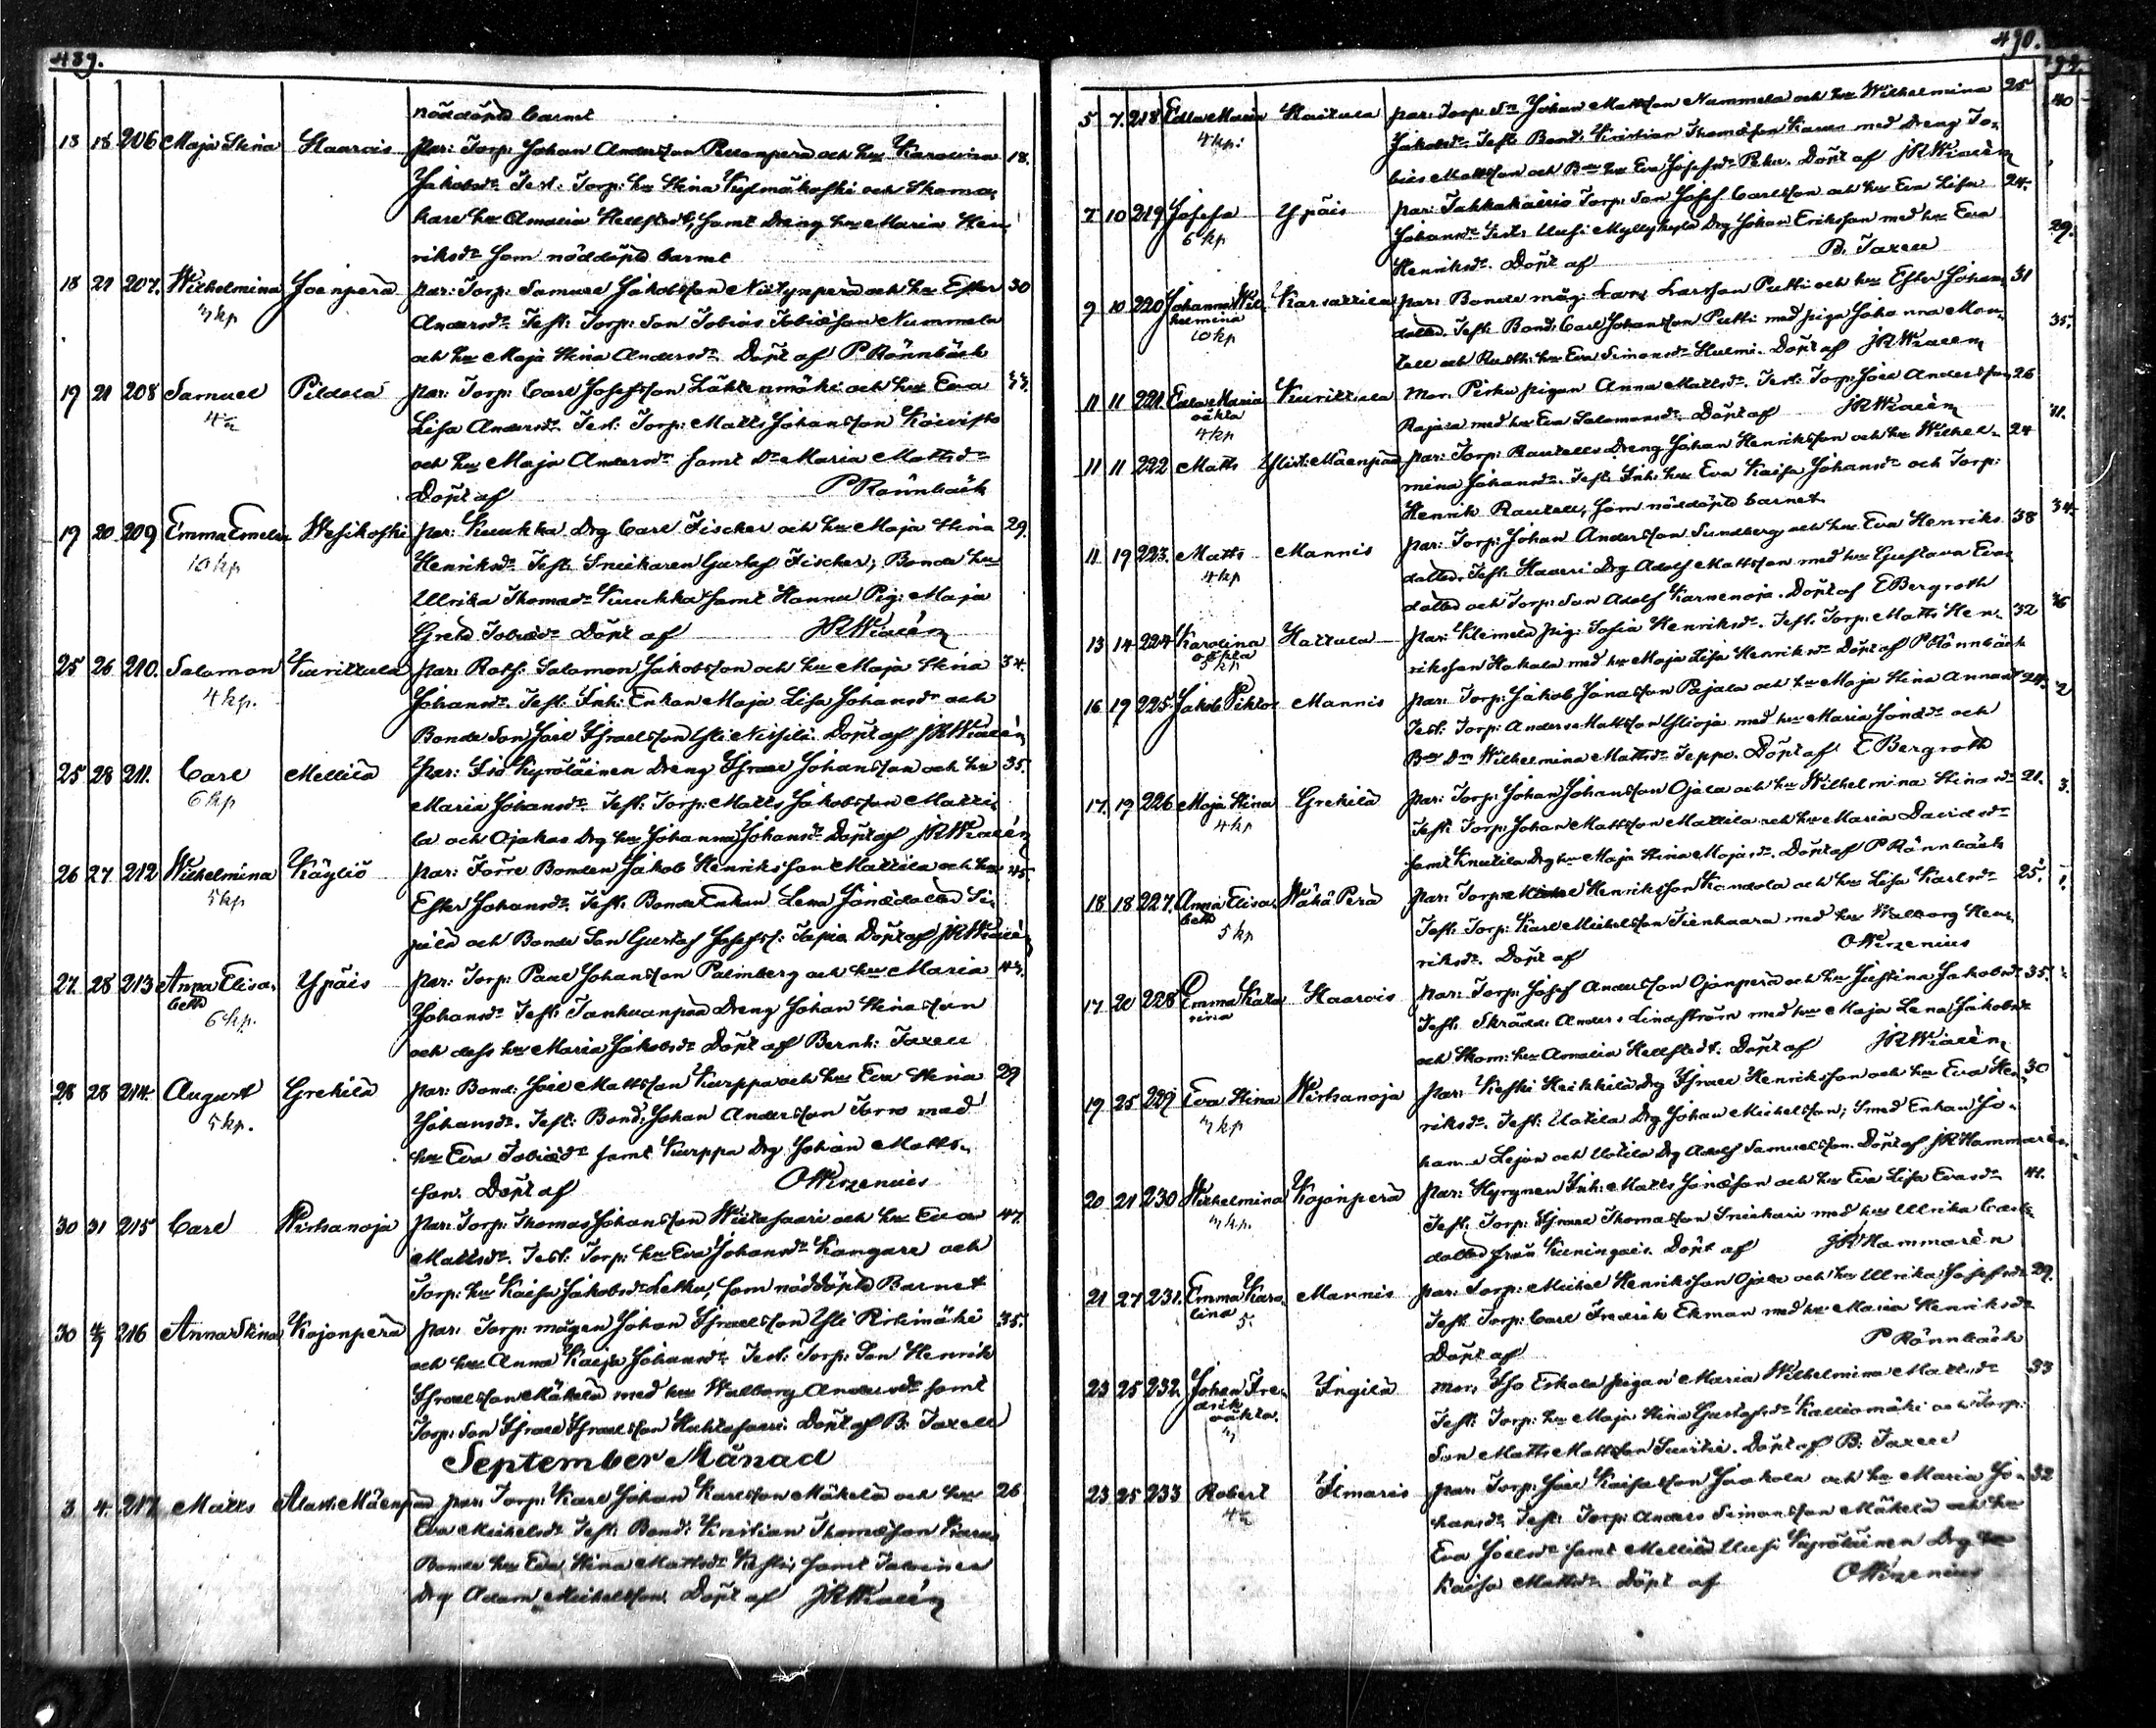 489.
nöddöpte barnet
13 18 206 Maja Stina Haarois Par: Torp: Johan Andersson Peeonperä och hu Karolina 18.
Jakobsdr. Test: Torp: hu Stina Kylmäkoski och Skoma-
kare hu Amalia Hellstedt, samt Dreng hu Maria Hen-
riksdr som nöddöpte barnet
18 21 207. Wilhelmina Joenperä par: Torp: Samuel Jakobsson Niitynperä och hu Ester 30
3 kp Andersdr. Test: Torp: Son Tobias Tobiasson Nummela
och hu Maja Stina Andersdr. Döpt af P Rönnbäck
19 21 208 Samuel Pildola par: Torp: Carl Josefsson Lähtenmäki och hu Eva 33.
4 Lisa Andersdr. Test: Torp: Matts Johansson Koivisto
och hu Maja Andersdr samt Dr Maria Mattsdr
Döpt af P Rönnbäck
19 20 209 Emma Emelie Wesikoski par: Kuukka Drg Carl Fischer och hu Maja Stina 29.
10 kp Henriksdr. Test: Snickaren Gustaf Fischer, Bonde hu
Ullrika Thomasdr Kuukka samt Hannu Pig: Maja
Greta Tobiasdr. Döpt af JRWialén
25 26 210. Salamon Kurittula par: Roth. Salamon Jakobsson och hu Maja Stina 34.
4 kp. Johansdr. Test: Inh: Enkan Maja Lisa Johansdr och
Bonde Son Joel Israelsson Yli Nissilä. Döpt af JRWialén
25 28 211. Carl Mellilä Par: Iso Kyröläinen Dreng Israel Johansson och hu 35.
6 kp Maria Johansdr. Test: Torp: Matts Jakobsson Matti-
la och Ojakas Drg hu Johanna Johansdr Döpt af JRWialén
26 27 212 Wilhelmina Käyliö par: Torre Bonden Jakob Henriksson Mattila och hu 45.
5 kp Ester Johansdr. Test: Bonde Enkan Lena Jonædotter Si-
pilä och Bonde Son Gustaf Josefss: Tapio. Döpt af JRWialén
27 28 213 Anna Elisa- Ypäis par: Torp: Paul Johansson Palmberg och hu Maria 43.
beth 6 kp. Johansdr. Test: Tanhuanpää Dreng Johan Stinasson
och dess hu Maria Jakobsdr. Döpt af Bernh: Taxell
28 28 214. August Grekilä par: Bond: Joel Mattsson Kurppa och hu Eva Stina 29
5 kp. Johansdr. Test: Bond: Johan Andersson Torro med
hu Eva Tobiædr samt Kurppa Drg Johan Matts-
son. Döpt af OWirzenius
30 31 215 Carl Wirhanoja par: Torp: Thomas Johansson Wiitasaari och hu Eva 47.
Mattsdr. Test: Torp: hu Eva Johansdr Kangare och
Torp: hu Kaisa Jakobsdr Letku, som nöddöpte Barnet
30 4/9 216 Anna Stina Kojonperä par: Torp: mågen Johan Israelsson Yli Ristimäki 35.
och hu Anna Kaisa Johansdr. Test: Torp: Son Henrik
Israelsson Mäkelä med hu Walborg Andersdr samt
Torp: Son Israel Israelsson Huhtasaari. Döpt af B. Taxell
September Månad
3 4. 217 Matts Alast: Mäenpää par: Torp: Karl Johan Karlsson Mäkelä och hu 26
Eva Michelsdr. Test: Bond: Kristian Thomæson Karus
Bonde hu Eva Stina Mattsdr Keski, samt Talvines
Drg Adam Michelsson. Döpt af JRWialén
490.
5 7. 218 Edla Maria Haitula par: Torp: Sn Johan Mattsson Nummela och hu Wilhelmina 25
4 kp: Jakobsdr. Test: Bond: Kristian Thomæson Karus med Dreng To-
bias Mattsson och Bon hu Eva Josefsdr Peku. Döpt af JRWialén
7 10 219 Josefa Ypäis par: Takkakallio Torp: Son Josef Carlsson och hu Eva Lisa 24.
6 kp Johansdr. Test: Uusi Myllykylä Drg Johan Eriksson med hu Eva
Henriksdr. Döpt af B. Taxell
9 10 220 Johanna Wil- Karsattila par: Bonde måg: Lars Larsson Putti och hu Ester Johans 31
helmina dotter. Test: Bond: Carl Johansson Putti med piga Johanna Mar-
10 kp tell och Rusth: hu Eva Simonsdr Hulmi. Döpt af JRWialén
11 11 221. Edla Maria Kurittula Mor. Pirku pigan Anna Mattsdr. Test: Torp: Joel Andersson 26
oäkta Rajala med hu Eva Salamonsdr. Döpt af JRWialén
4 kp
11 11 222 Matts Ylist: Mäenpää par: Torp: Rautells Dreng Johan Henriksson och hu Wilhel- 24
mina Johansdr. Test: Inh: hu Eva Kaisa Johansdr och Torp:
Henrik Rautell, som nöddöpte barnet
11 19 223. Matts Mannis par: Torp: Johan Andersson Sundberg och hu Eva Henriks 38
4 kp dotter. Test: Haveri Drg Adolf Mattsson med hu Gustava Eva-
dotter och Torp: Son Adolf Karnenoja. Döpt af EBergroth
13 14 224 Karolina Hattula par: Kleimola pig: Sofia Henriksdr. Test: Torp: Matts Hen- 32
oäkta 5 kp riksson Hakala med hu Maja Lisa Henriksdr Döpt af P Rönnbäck
16 19 225. Jakob Viktor Mannis par: Torp: Jakob Jonasson Pajala och hu Maja Stina Annasdr 24.
Test: Torp: Anders Mattsson Ylioja med hu Maria Jonædr och
Bon Dr Wilhelmina Mattsdr Seppe. Döpt af EBergroth
17. 19 226 Maja Stina Grekilä par: Torp: Johan Johansson Ojala och hu Wilhelmina Stinasdr 21.
4 kp Test: Torp: Johan Mattsson Mattila och hu Maria Davidsdr
samt Knutila Drg hu Maja Stina Majasdr. Döpt af P Rönnbäck
18 18 227. Anna Elisa- Wähä Perä par: Torp: Michel Henriksson Kandola och hu Lisa Karlsdr 25.
beth 5 kp Test: Torp: Karl Michelsson Tienhaara med hu Walborg Hen-
riksdr. Döpt af OWirzenius
17 20 228 Emma Kata- Haarois par: Torp: Josef Andersson Ojanperä och hu Justina Jakobsdr 35.
rina Test: Skrädd: Anders Lindström med hu Maja Lena Jakobsdr
och Skom: hu Amalia Hellstedt. Döpt af JRWialén
19 25 229 Eva Stina Wirhanoja par: Keski Heikkilä Drg Israel Henriksson och hu Eva Hen- 30
3 kp riksdr. Test: Uotila Drg Johan Michelsson; Smed Enkan Jo-
hanna Lejon och Uotila Drg Adolf Samuelsson. Döpt af JRHammarén
20 21 230 Wilhelmina Kojonperä par: Hyrynen Inh: Matts Jonæson och hu Eva Lisa Evasdr 41.
3 kp. Test: Torp: Israel Thomasson Snickari med hu Ullrika Carls-
dotter från Kieningais. Döpt af JRHammarén
21 27 231. Emma Karo- Mannis par: Torp: Michel Henriksson Ojala och hu Ullrika Josefsdr 29.
lina 5. Test: Torp: Carl Fredrik Ekman med hu Maria Henriksdr
Döpt af P Rönnbäck
23 25 232. Johan Fre- Yngilä Mor, Iso Eskola pigan Maria Wilhelmina Mattsdr 33
drik oäkta. Test: Torp: hu Maja Stina Gustafsdr Kalliomäki och Torp:
3 Son Matts Mattsson Suutri. Döpt af B: Taxell
23 25 233 Robert Ilmaris par: Torp: Joel Kaisasson Jaakola och hu Maria Jo- 32
4 hansdr. Test: Torp: Anders Simonsson Mäkelä och hu
Eva Joelsdr samt Mellilä Uusi Kyröläinen Drg hu
Kaisa Mattsdr. Döpt af OWirzenius